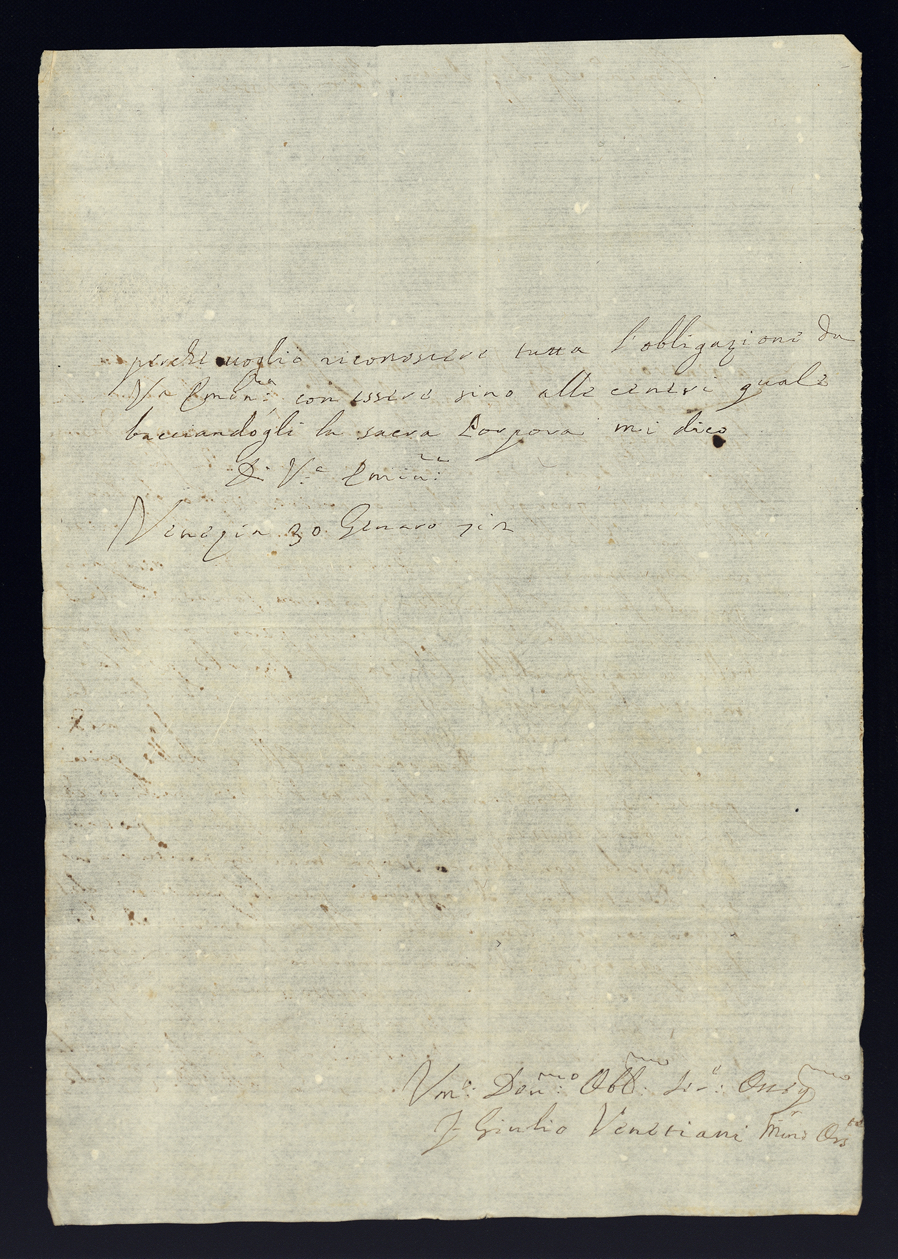 perche uoglio riconoscere tutta l'obligazioni da
V.ra Emin.za con essere sino alle ceneri quale
bacciandogli la sacra Porpora mi dico
D. V.a Emin.
Venezia 30 Genaro 712
Vm.o Deu.mo Obb.mo Ser.e Osseq.mo
F. Giulio Venetiani Min.